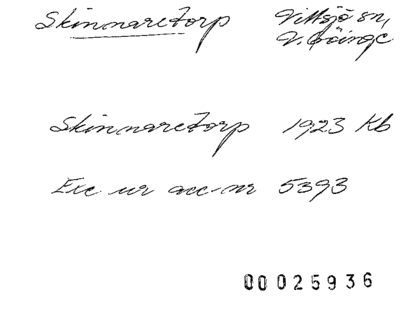 Skinnaretorp Vittsjö sn,
V. Göinge
Skinnaretorp 1923 Kb
Exc ur acc-nr 5393
00025936